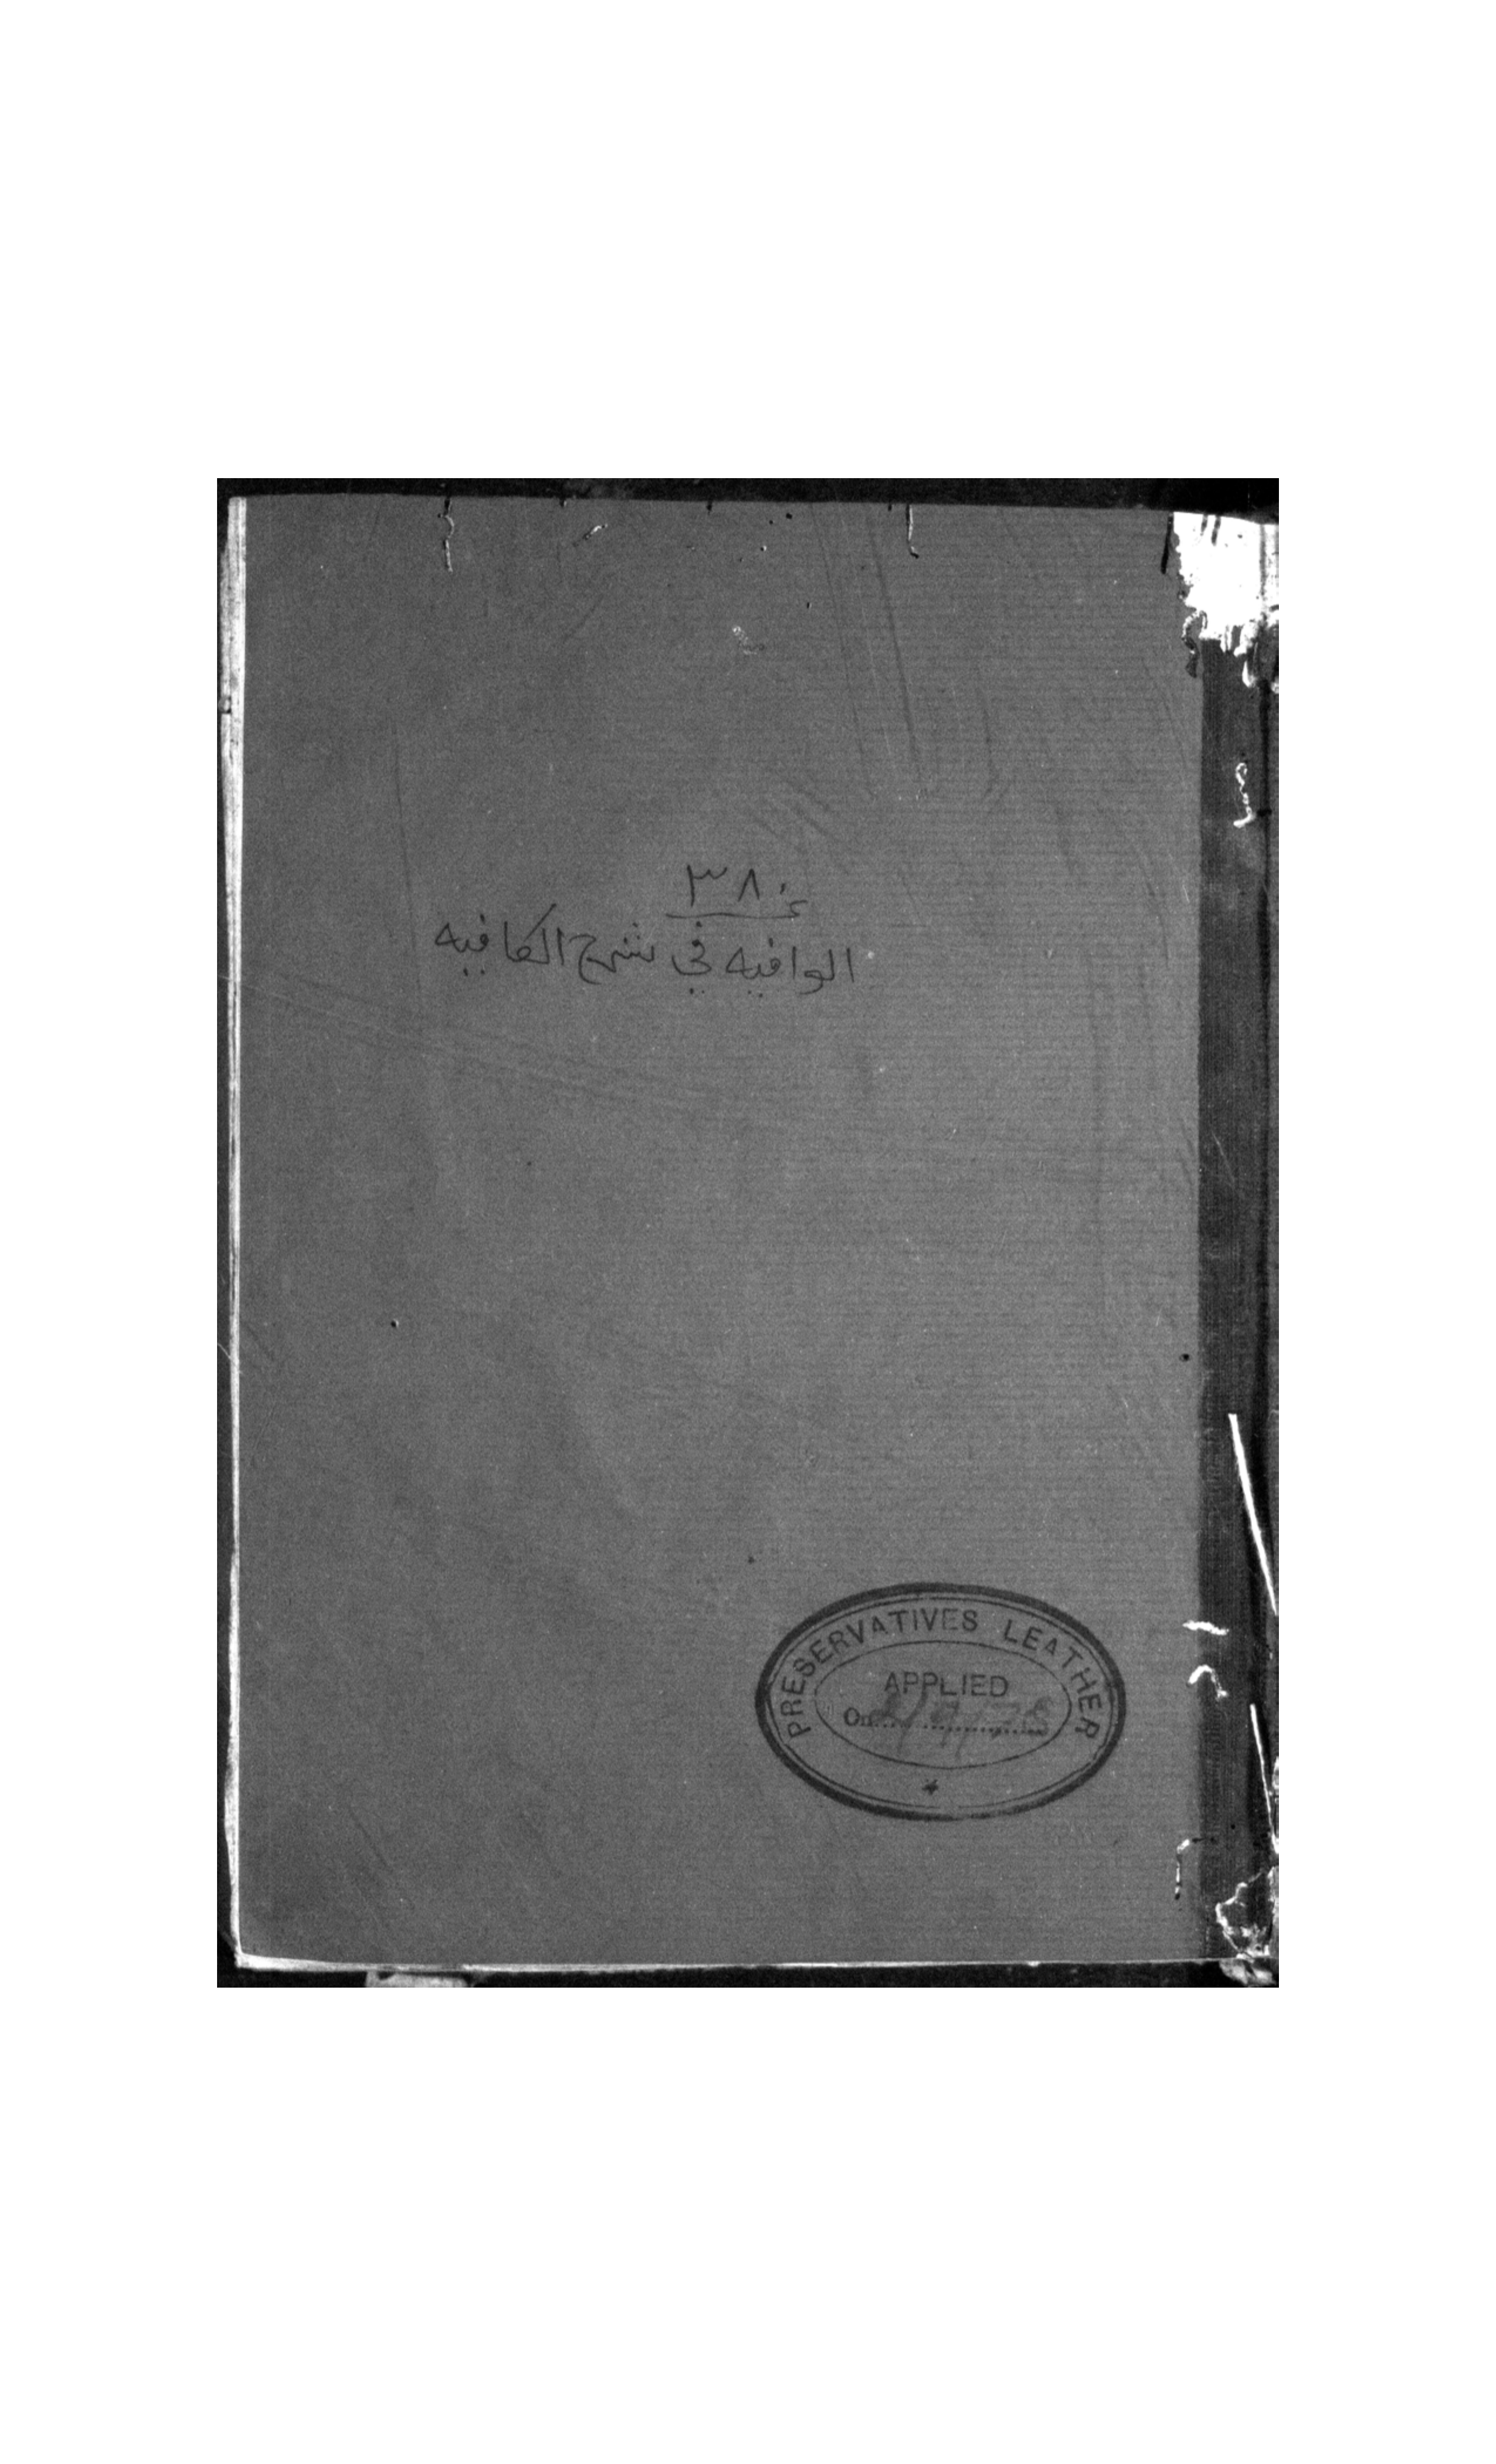 ٣٨٠
الوافيه في شرح الكافيه
PRESERVATIVES LEATHER
APPLIED
On